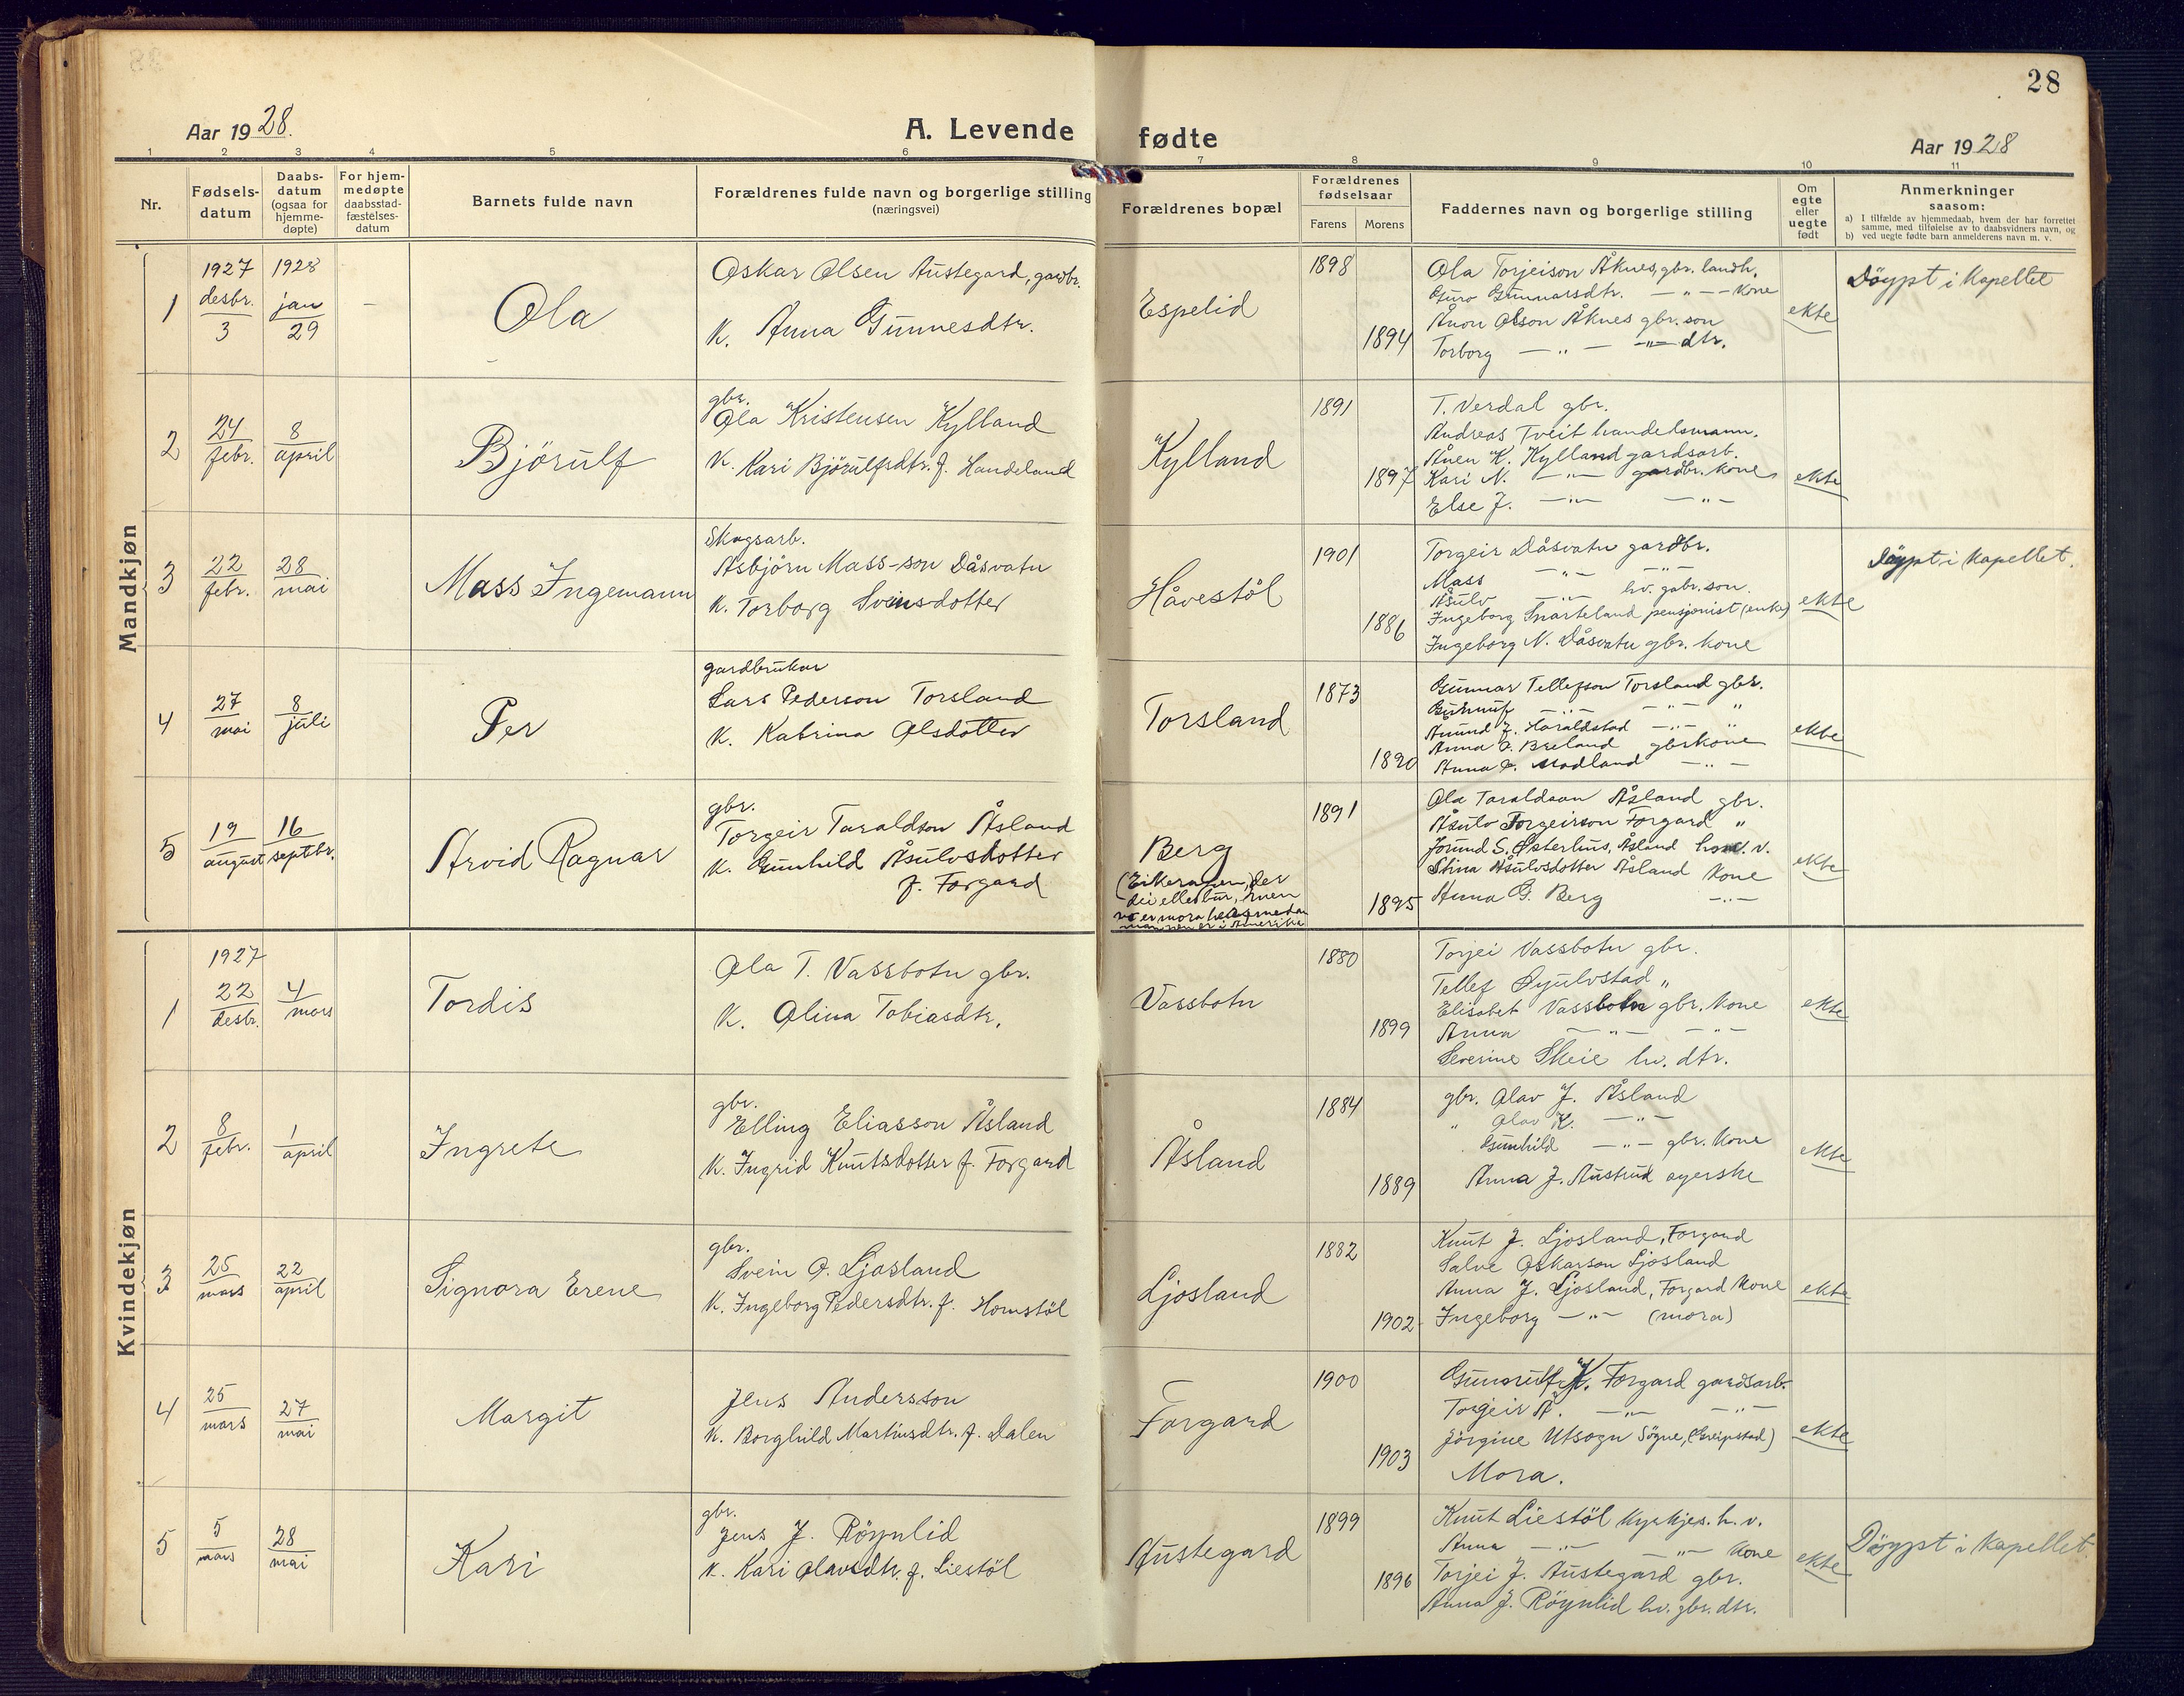 28
Aar 1928.
A. Levende fødte
Aar 1928
1 2 3 4 5 6 7 8 9 10 11
Nr.
Fødsels-
datum
Daabs-
datum
(ogsaa for
hjemme-
døpte)
For hjem-
medøpte
daabsstad-
fæstelses-
datum
Barnets fulde navn
Forældrenes fulde navn og borgerlige stilling
(næringsvei)
Forældrenes bopæl
Forældrenes
fødselsaar
Farens Morens
Faddernes navn og borgerlige stilling
Om
egte
eller
uegte
født
Anmerkninger
saasom:
a) I tilfælde av hjemmedaab, hvem der har forrettet
samme, med tilføielse av to daabsvidners navn, og
b) ved uegte fødte barn anmelderens navn m. v.
Mandkjøn
1
1927
desbr.
3
1928
jan
29
–
Ola
Oskar Olsen Austegard, gardbr.
K. Anna Gunnesdtr.
Espelid
1898
1894
Ola Torjeison Åknes, gbr. landh.
Guro Gunnarsdtr. — " — Kone
Ånon Olsson Åknes gbr. son
Torborg — " — — " — dtr.
ekte
Döypt i Kapellet
2
24
febr.
8
april
Björulf
gbr.
Ola Kristensen Kylland
K. Kari Björulfsdtr. f. Handeland
Kylland
1891
1897
T. Verdal gbr.
Andreas Tveit handelsmann.
Ånen K. Kylland gardsarb.
Kari N. — " — gardbr. kone
Else J. — " — — " —
ekte
3
22
febr.
28
mai
Mass Ingemann
Skogsarb.
Asbjörn Mass-son Dåsvatn
K. Torborg Sveinsdotter
Håvestöl
1901
1886
Torgeir Dåsvatn gardbr.
Mass — " — — " —
Åsulv — " — hv. gbr. son.
Ingeborg Snarteland pensjonist (enke)
Ingeborg N. Dåsvatn gbr. kone
ekte
Döypt i Kapellet.
4
27
mai
8
juli
Per
gardbrukar
Lars Pederson Torsland
K. Katrina Olsdotter
Torsland
1873
1890
Gunnar Tellefson Torsland gbr.
— " — — " — "
Ånund J. Haraldstad — " — "
Anna O. Breland gbrkone
Anna Modland — " —
ekte
5
19
august
16
septbr.
Arvid Ragnar
gbr.
Torgeir Taraldson Åsland
K. Gunhild Åsulvsdotter
f. Forgard
Berg
(Eikerapen, der
dei elles bur, men
no er mora her, medan
mannen er i Amerika
1891
1895
Ola Taraldson Åsland gbr.
Åsulv Torgeirson Forgard "
Jorund S. Østerhus, Åsland
Stina Åsulvsdotter Åsland Kone
Anna G. Berg — " —
ekte
Kvindekjøn
1
1927
22
desbr.
4
mars
Tordis
Ola T. Vassbotn gbr.
K. Olina Tobiasdtr.
Vassbotn
1880
1899
Torjei Vassbotn gbr.
Tellef Øyulvstad "
Elisabet Vassbotn gbr. Kone
Anna — " — — " —
Severine Skeie hv. dtr.
ekte
2
8
febr.
1
april
Ingrete
gbr.
Elling Eliasson Åsland
K. Ingrid Knutsdotter f. Forgard
Åsland
1884
1889
gbr. Olav J. Åsland
" Olav K. — " —
Gunhild — " — gbr. Kone
Anna J. Austrud
ekte
3
25
mars
22
april
Signora Erene
gbr.
Svein O. Ljosland
K. Ingeborg Pedersdtr. f. Homstöl
Ljosland
1882
1902
Knut J. Ljosland, Forgard
Salve Oskarson Ljosland
Anna J. Ljosland, Forgard Kone
Ingeborg — " — (mora)
ekte
4
25
mars
27
mai
Margit
Jens Andersson
K. Borghild Martinsdtr. f. Dalen
Forgard
1900
1903
Gunnulf K. Forgard gardsarb.
Torgeir Å. — " — — " —
Jörgine Utsogn Sögne, (Greipstad)
Mora.
ekte
5
5
mars
28
mai
Kari
gbr.
Jens J. Röynlid
K. Kari Olavsdtr. f. Liestöl
Austegard
1899
1896
Knut Liestöl kyrkjes. h. v.
Anna — " — — " — Kone
Torjei J. Austegard gbr.
Anna J. Röynlid hv. gbr. dtr.
ekte
Döypt i Kapellet.